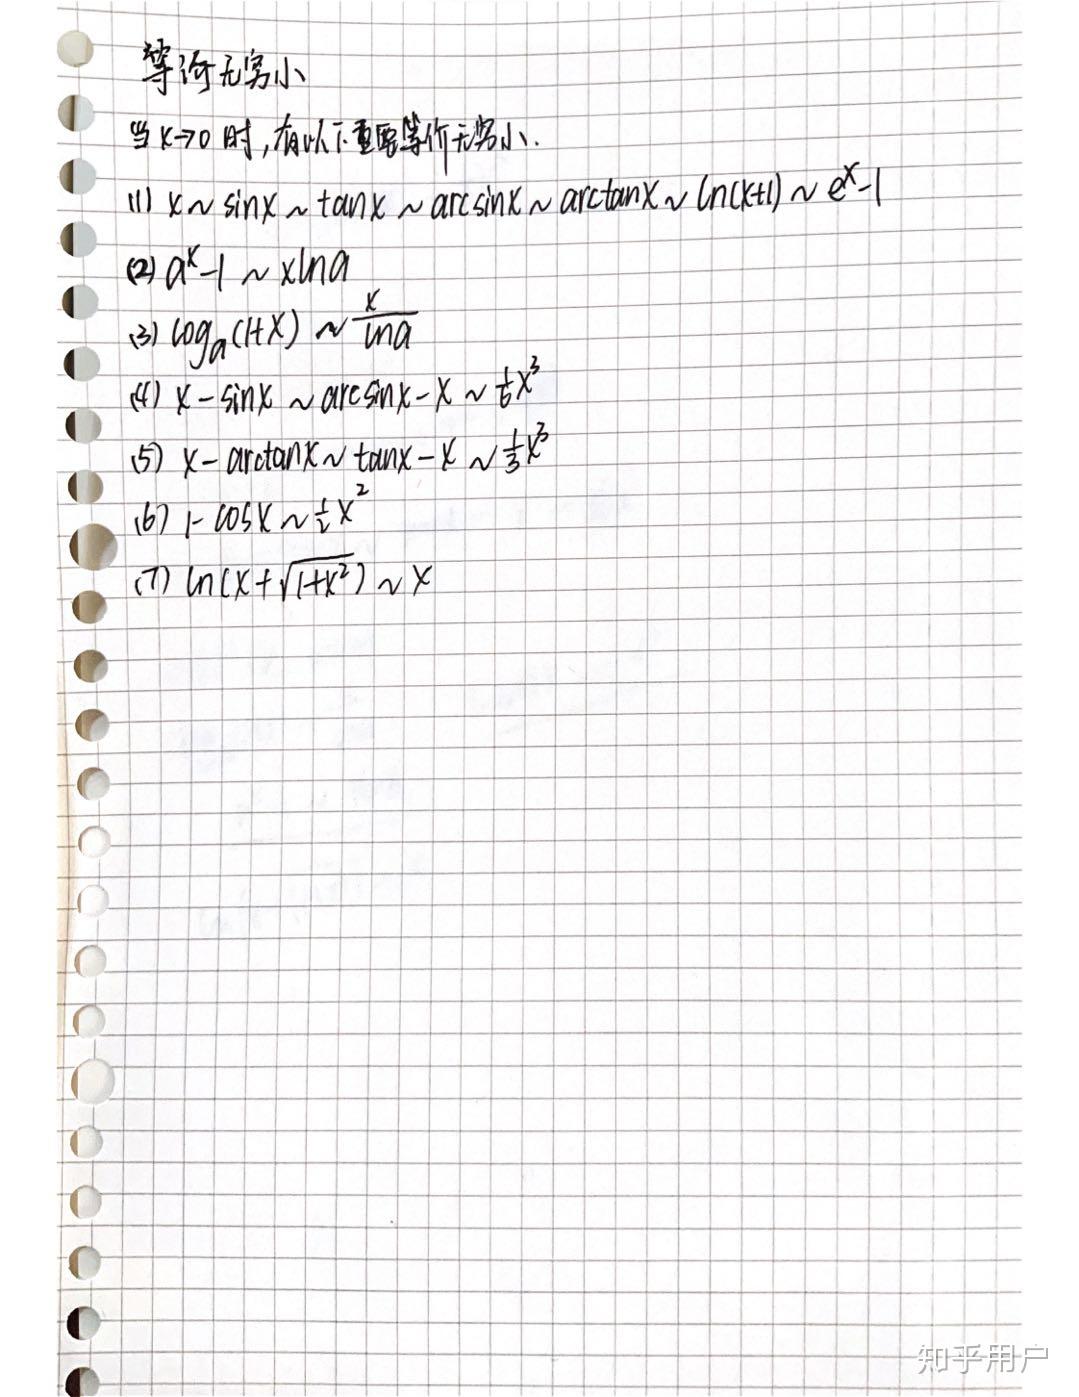 等价无穷小
当x→0时,有以下重要等价无穷小.
(1) x~sinx~tanx~arcsinx~arctanx~ln(x+1)~eˣ-1
(2) aˣ-1~xlna
(3) logₐ(1+x)~x/lna
(4) x-sinx~arcsinx-x~1/6x³
(5) x-arctanx~tanx-x~1/3x³
(6) 1-cosx~1/2x²
(7) ln(x+√(1+x²))~x
知乎用户